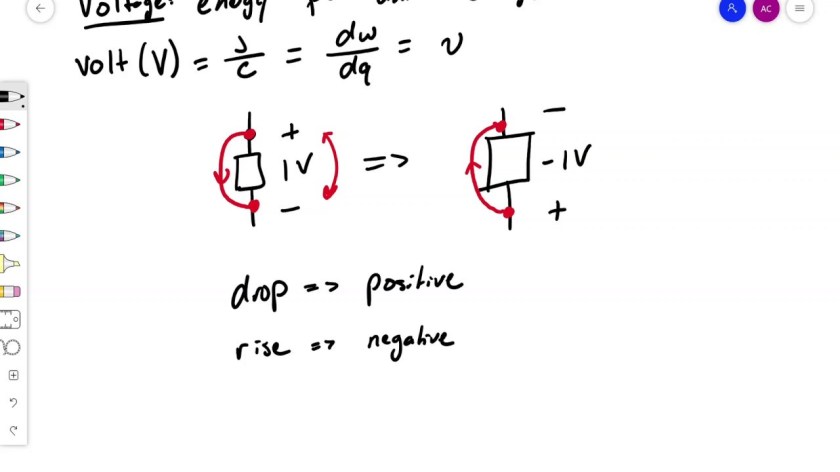 Voltage: energy
volt (V) = J/C = dw/dq = v
+ -
1V => -1V
- +
drop => positive
rise => negative
AC